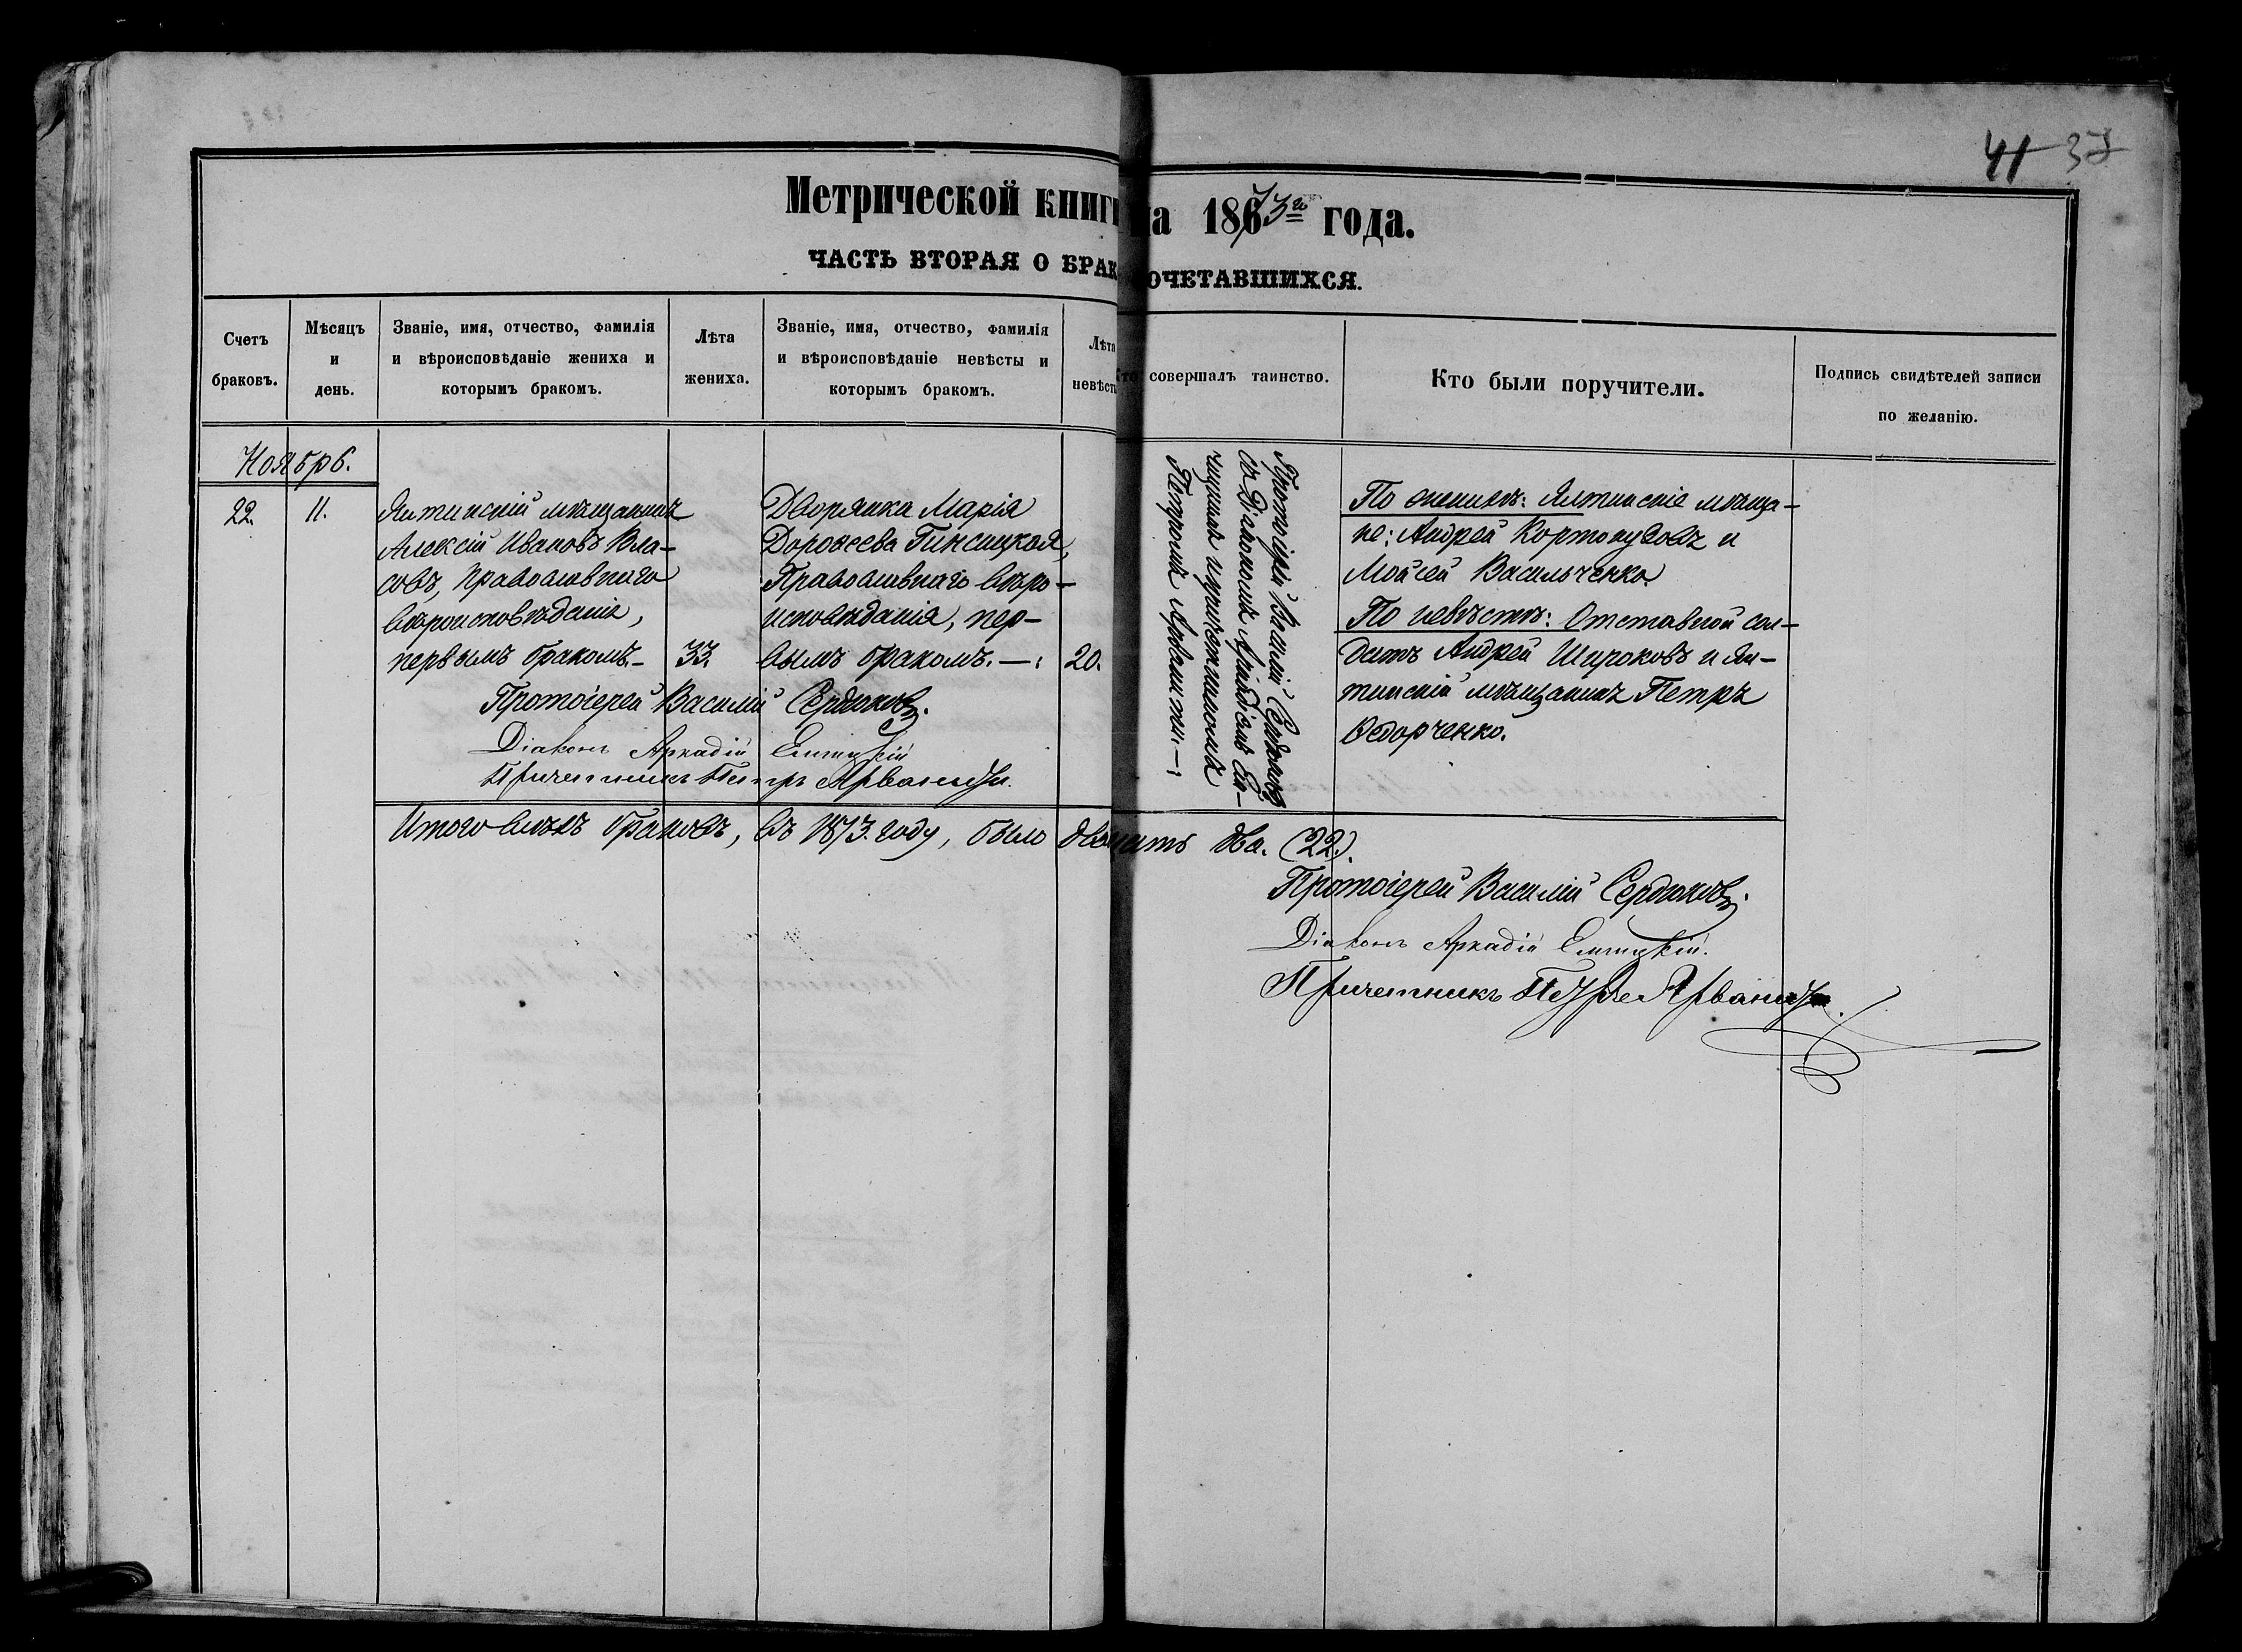 41 37
Метрической книги на 1873го года.
ЧАСТЬ ВТОРАЯ О БРАКОСОЧЕТАВШИХСЯ.
Счетъ
браковъ.
Мѣсяцъ
и
день.
Званіе, имя, отчество, фамилія
и вѣроисповѣданіе жениха и
которымъ бракомъ.
Лѣта
жениха.
Званіе, имя, отчество, фамилія
и вѣроисповѣданіе невѣсты и
которымъ бракомъ.
Лѣта
невѣсты
Кто совершалъ таинство.
Кто были поручители.
Подпись свидѣтелей записи
по желанію.
Ноябрь.
22.
11.
Ялтинскій мѣщанинъ
Алексій Ивановъ Вла-
совъ, православнаго
вѣроисповѣданія,
первымъ бракомъ.-
33.
Дворянка Марія
Дороѳеева Гинсицкая,
Православнаго вѣро-
исповѣданія, пер-
вымъ бракомъ.—:
20.
Протоіерей Василій Сердюковъ
съ Діакономъ Аркадіемъ Ел-
Петромъ Арванити.—:
По женихѣ: Ялтинскіе мѣща-
не: Андрей Кортопусовъ и
Мойсей Васильченко.
По невѣстѣ: Отставной сол-
датъ Андрей Широковъ и Ял-
тинскій мѣщанинъ Петръ
Ѳедорченко.
Протоіерей Василій Сердюковъ.
Діаконъ Аркадій
Причетникъ Петръ Арваниди.
Итого всѣхъ браковъ, въ 1873. году, было двадцать два. (22).
Протоіерей Василій Сердюковъ.
Діаконъ Аркадій
Причетникъ Петръ Арваниди.